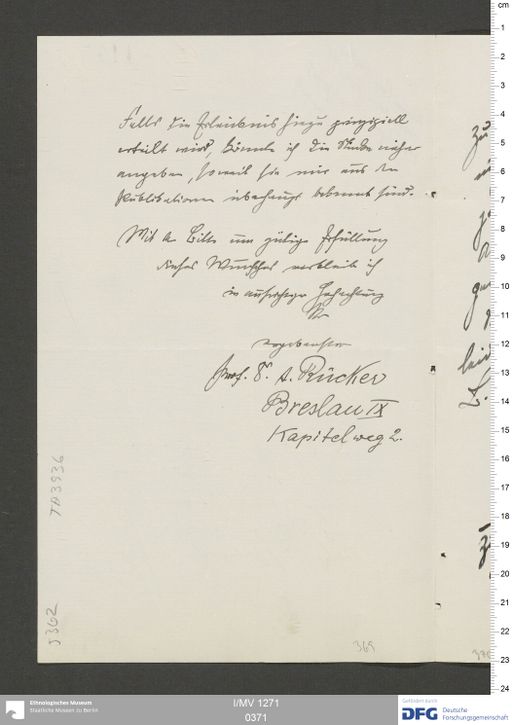 Falls die Erlaubnis hiezu prinzipiell
erteilt wird, könnte ich die Stücke näher
angeben, soweit sie mir aus den
Publikationen überhaupt bekannt sind.
Mit der Bitte um gütige Erfüllung
dieses Wunsches verbleibe ich
in aufrichtiger Hochachtung
Ihr
ergebenster
Prof. Dr. A. Rücker
Breslau IX
Kapitelweg 2.
TA3936
J362
365
zu
Ethnologisches Museum
Staatliche Museen zu Berlin
I/MV 1271
0371
Gefördert durch
DFG
Deutsche
Forschungsgemeinschaft
cm
1
2
3
4
5
6
7
8
9
10
11
12
13
14
15
16
17
18
19
20
21
22
23
24